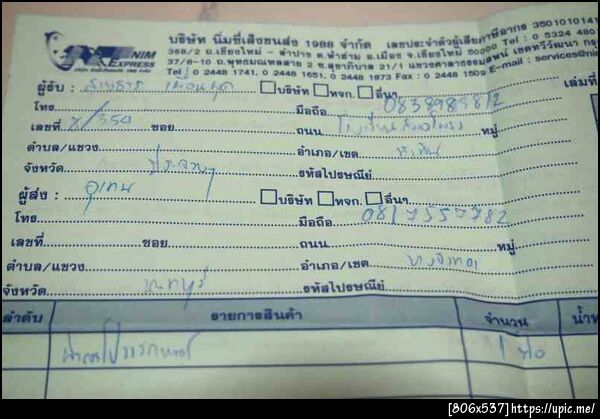 NIM EXPRESS
บริษัท นิ่มซี่เส็งขนส่ง 1988 จำกัด เลขประจำตัวผู้เสียภาษีอากร 3501010141
368/2 ถ.เชียงใหม่ - ลำปาง ต.ฟ้าฮ่าม อ.เมือง จ.เชียงใหม่ 50000 Tel : 0 5324 480
37/8-10 ถ.พุทธมณฑลสาย 2 ซ.สุขาภิบาล 21/1 แขวงศาลาธรรมสพน์ เขตทวีวัฒนา กรุง
Tel : 0 2448 1741, 0 2448 1651, 0 2448 1873 Fax : 0 2448 1509 E-mail : services@nim
ผู้รับ : บริษัท หจก. อื่นๆ เล่มที่
โทร มือถือ 0838989872
เลขที่ ซอย ถนน หมู่
ตำบล/แขวง อำเภอ/เขต หัวหิน
จังหวัด ประจวบฯ รหัสไปรษณีย์
ผู้ส่ง : อุเทน บริษัท หจก. อื่นๆ
โทร มือถือ 0817557782
เลขที่ ซอย ถนน หมู่
ตำบล/แขวง อำเภอ/เขต
จังหวัด รหัสไปรษณีย์
ลำดับ รายการสินค้า จำนวน
1
[806x537] https://upic.me/